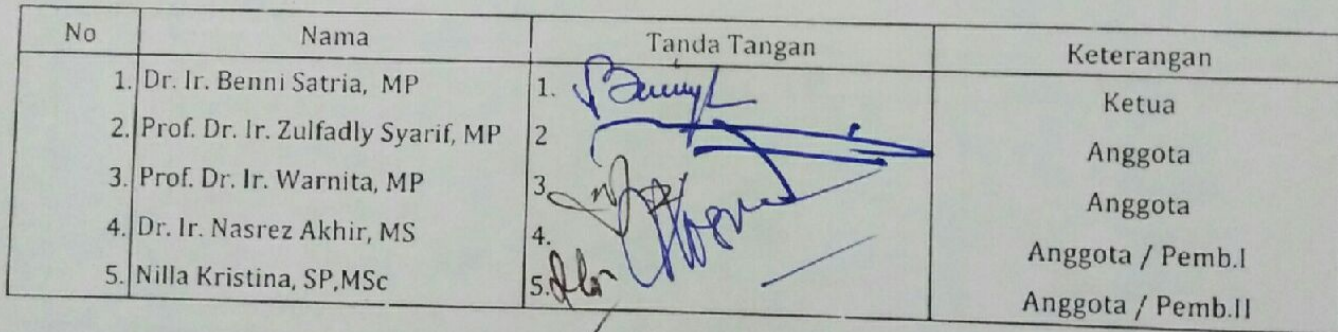 No Nama Tanda Tangan Keterangan
1. Dr. Ir. Benni Satria, MP 1. Ketua
2. Prof. Dr. Ir. Zulfadly Syarif, MP 2 Anggota
3. Prof. Dr. Ir. Warnita, MP 3. Anggota
4. Dr. Ir. Nasrez Akhir, MS 4. Anggota / Pemb.I
5. Nilla Kristina, SP,MSc 5. Anggota / Pemb.II